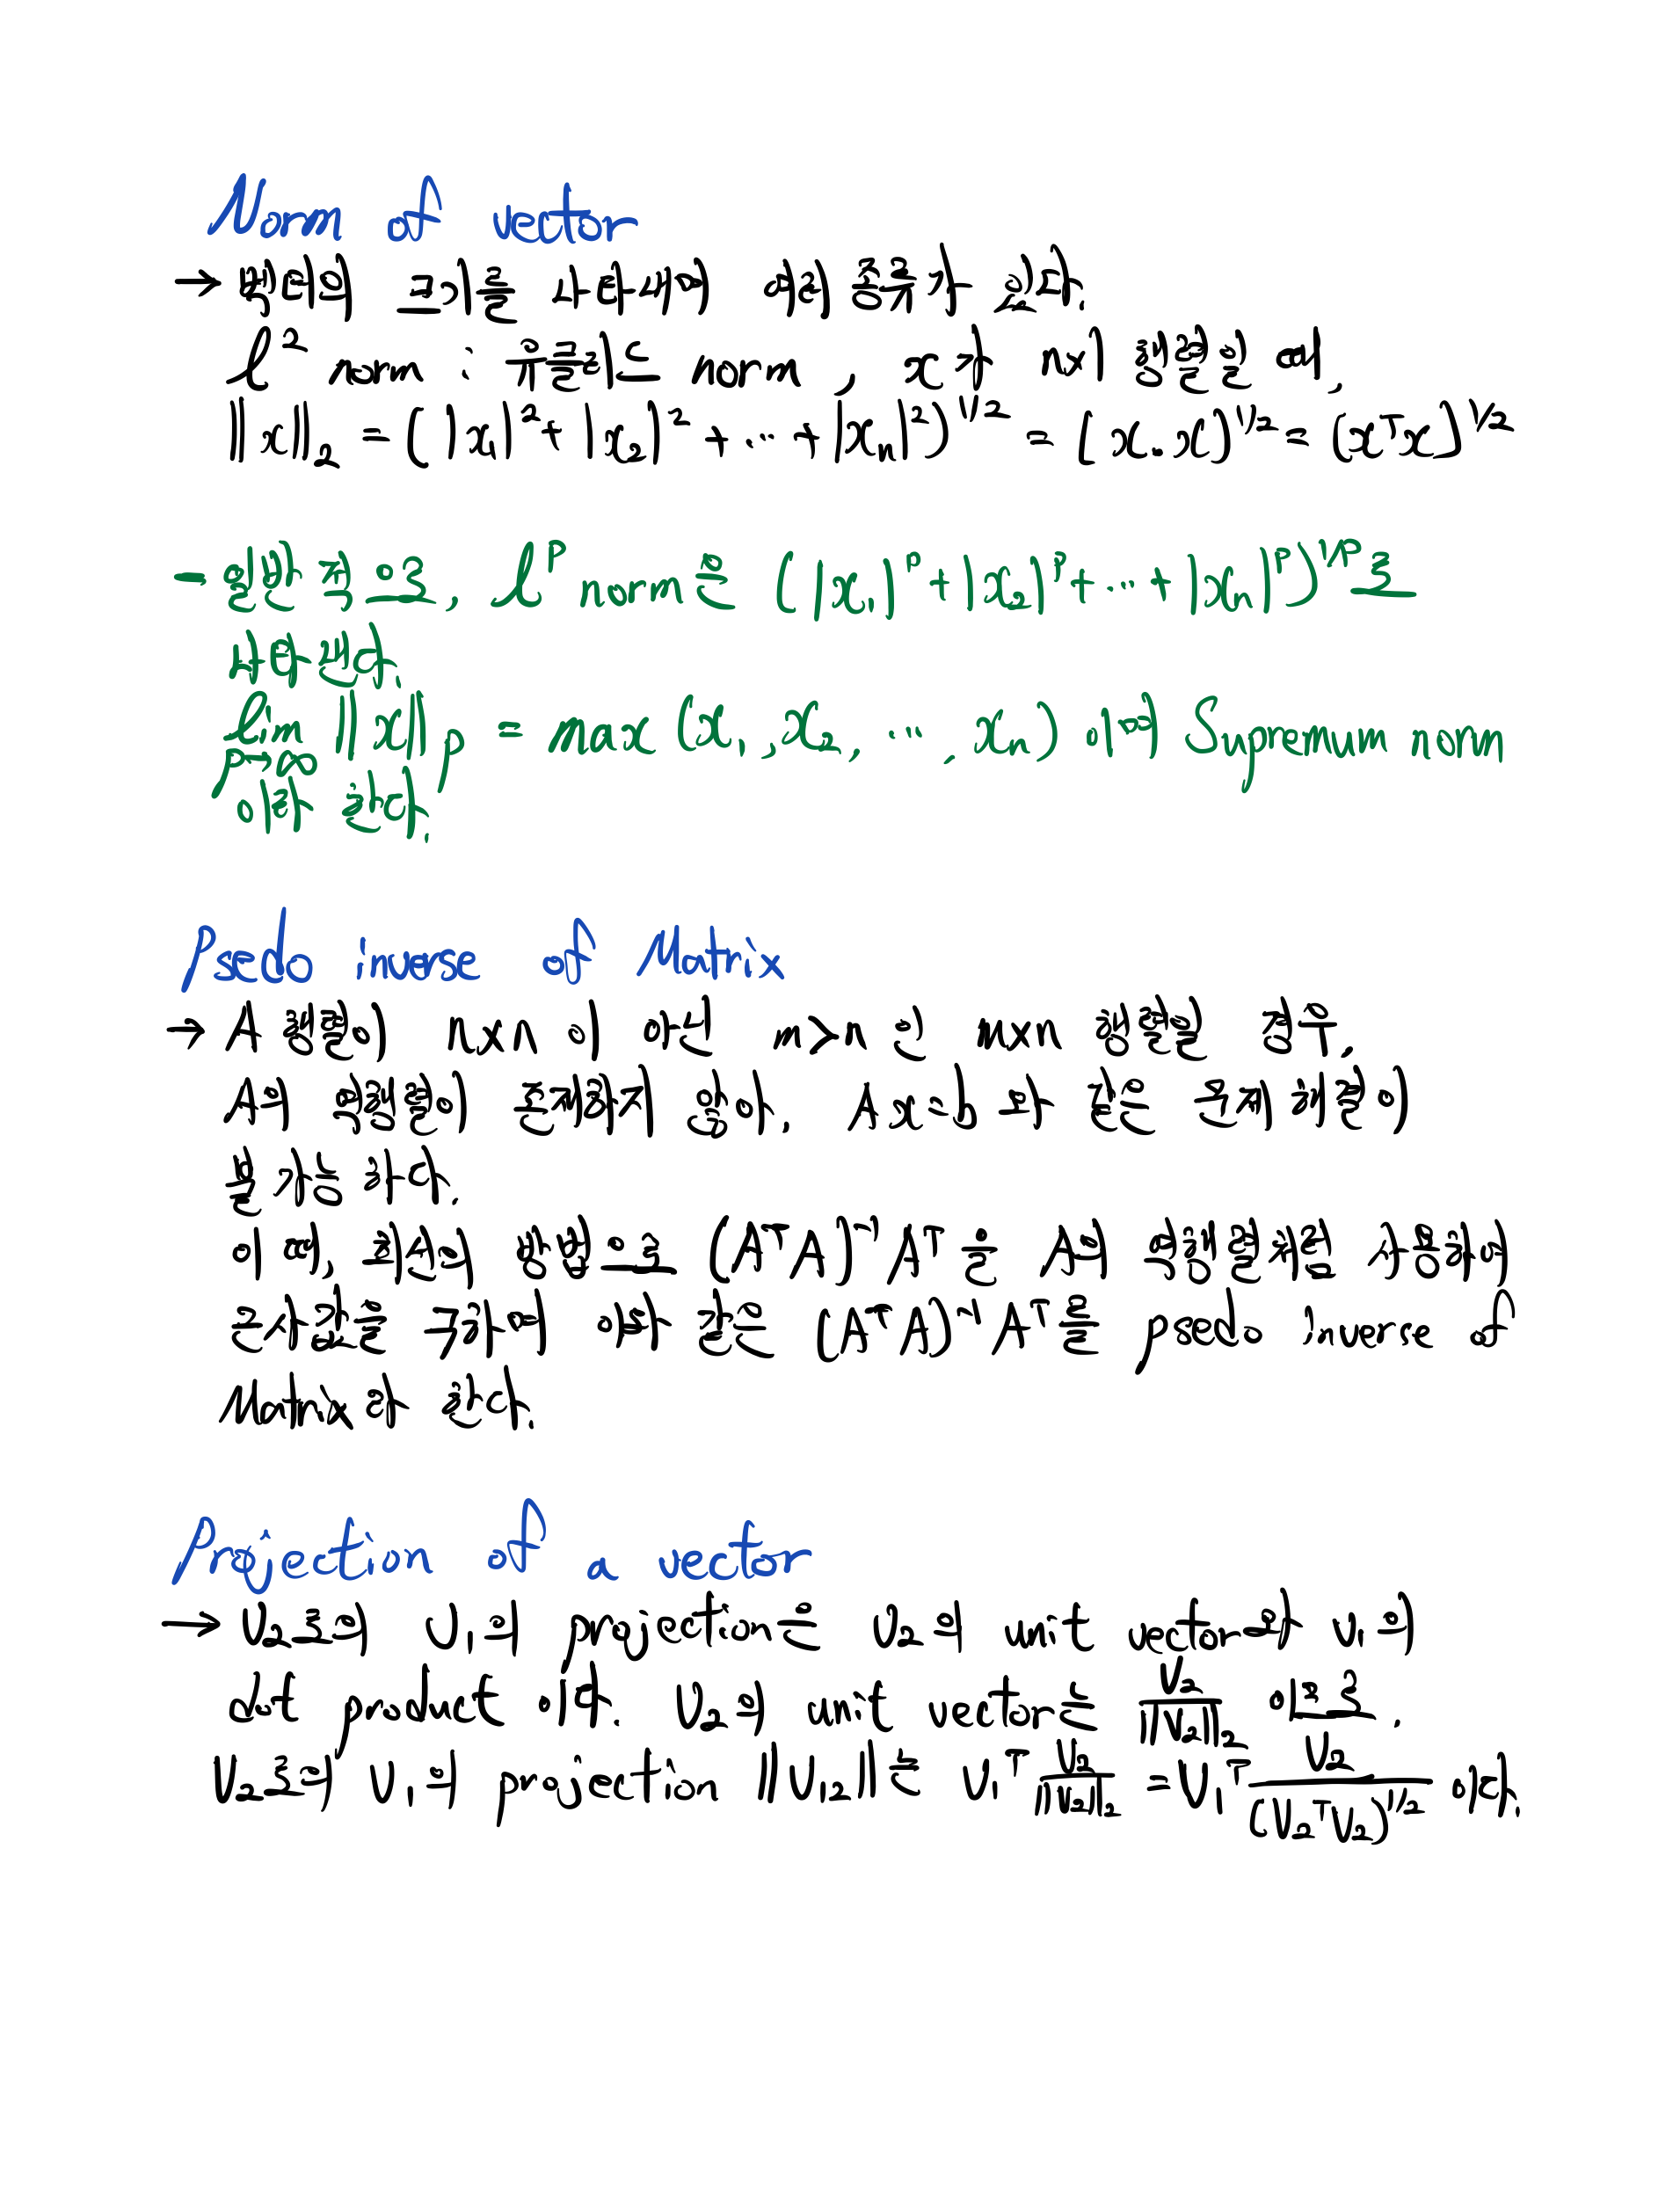 Norm of vector
→ 벡터의 크기를 나타내며 여러 종류가 있다.
ℓ² norm : 유클리드 norm, x가 nx1 행렬일 때,
||x||₂ = (|x₁|²+|x₂|²+⋯+|xₙ|²)^1/2 = (x.x)^1/2 = (xᵀx)^1/2
- 일반적으로, ℓᵖ norm은 (|x₁|ᵖ+|x₂|ᵖ+⋯+|xₙ|ᵖ)^1/p로
나타낸다.
lim p→∞ ||x||p = max (x₁,x₂, ⋯, xₙ) 이며 Supremum norm
이라 한다.
Psedo inverse of Matrix
→ A 행렬이 nxn 이 아닌 m>n 인 mxn 행렬일 경우,
A의 역행렬이 존재하지 않아, Ax=b 와 같은 문제 해결이
불가능 하다.
이 때, 최선의 방법으로 (AᵀA)⁻¹Aᵀ 을 A의 역행렬처럼 사용하여
근사값을 구하며 이와 같은 (AᵀA)⁻¹Aᵀ를 psedo inverse of
Matrix라 한다.
Projection of a vector
→ V₂로의 V₁의 projection은 V₂의 unit vector와 V₁의
dot product 이다. V₂의 unit vector는 V₂/||V₂||₂ 이므로,
V₂로의 V₁의 projection ||V₁₂||는 V₁ᵀ V₂/||V₂||₂ = V₁ᵀ V₂/(V₂ᵀV₂)^1/2 이다.